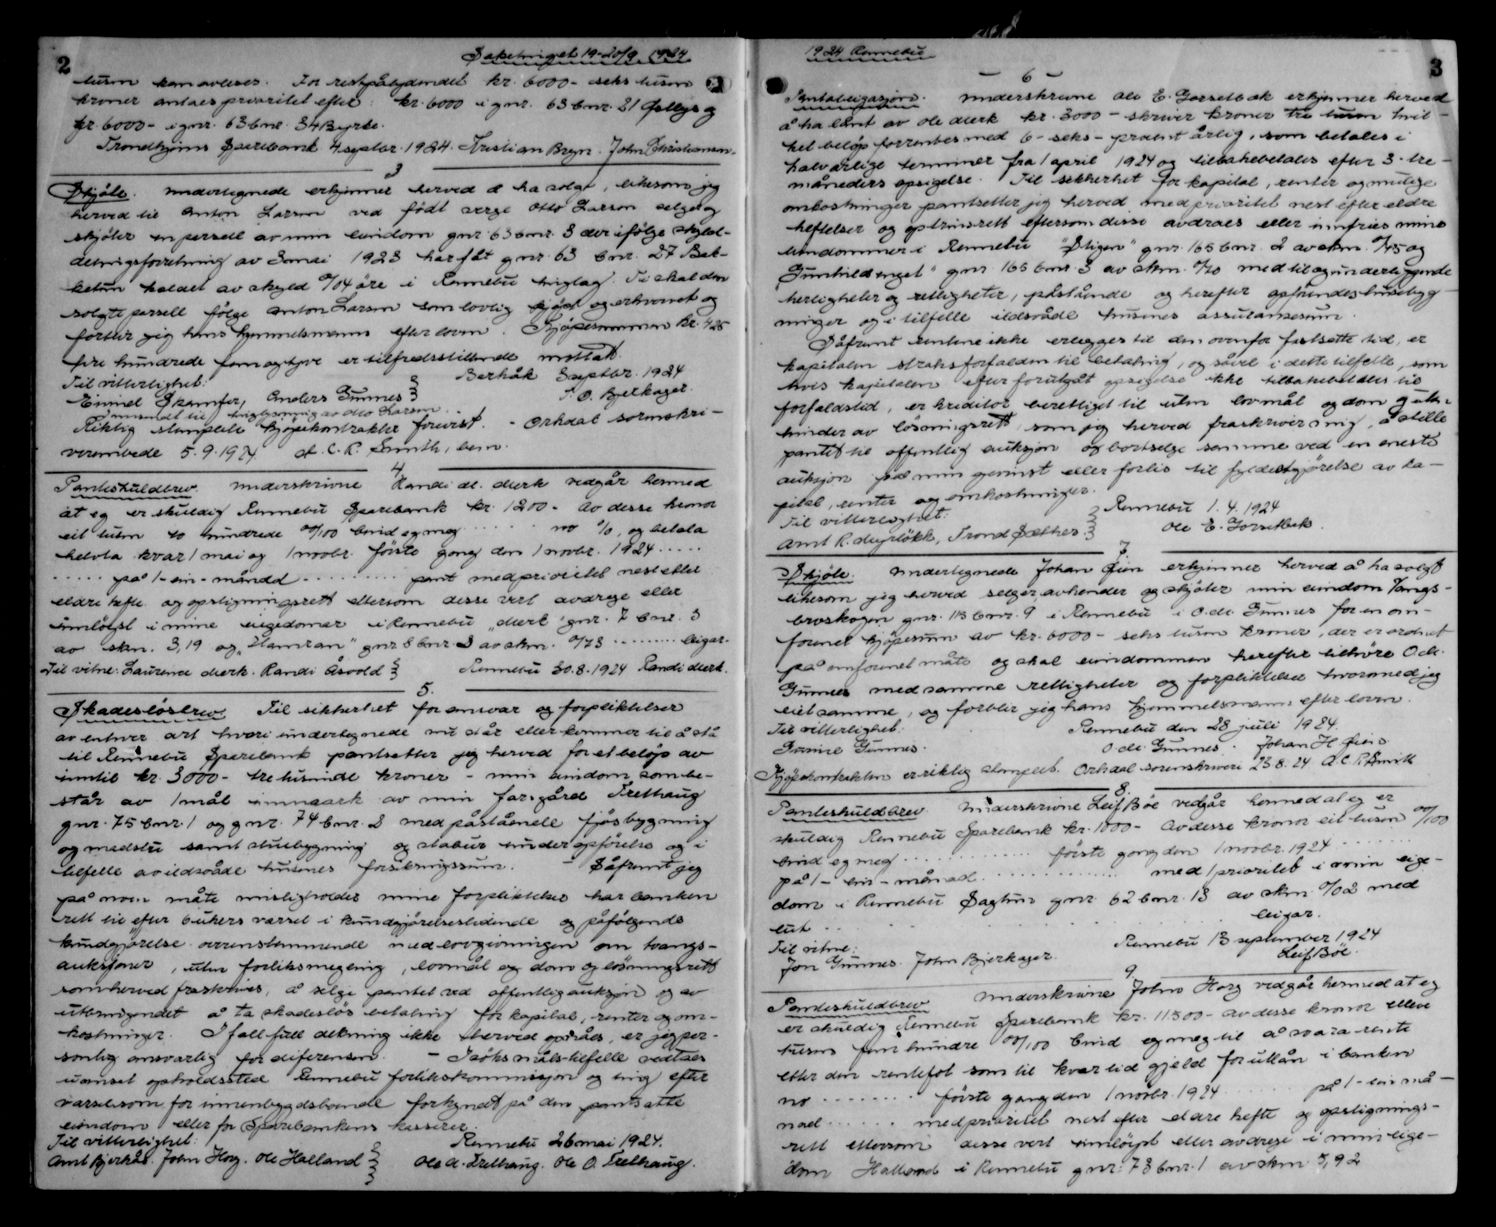 2
Saketinget 19-20/9 1924
tusen kan avleses. For restpålydendet kr. 6000 - seks tusen
kroner antaes prioritet efter: kr. 6000 i gnr. 63 bnr. 21 og
kr 6000 - i gnr. 63 bnr. 34 Byrse.
Trondhjems Sparebank 4 septbr. 1924. Kristian Bryn. John Christiansen.
3
Skjöte. undertegnede erkjenner herved å ha solgt, likesom jeg
herved til Anton Larsen ved födt verge Otto Larsen selger og
skjöter en parsell av min eiendom gnr. 63 bnr. 3 der ifölge skyld-
delingsforretning av 3 mai 1923 har fåt gnr. 63 bnr. 27 Bak-
ketun kaldet av skyld 0/04 öre i Rennebu tinglag. Ti skal den
solgte parsell fölge Anton Larsen som lovlig kjöpt og erhvervet og
forblir jeg hans hjemmelsmann efter loven. Kjöpesummen kr. 425
fire hundrede fem og tyve er tilfredsstillende mottatt.
Til vitterlighet: Berkåk 3 septbr. 1924
Eivind Skamfer, Anders Gunnes J. O. Bjerkager.
Samtykt til tinglysning av Otto Larsen.
Riktig stemplete kjöpekontrakter forevist. - Orkdal sorenskri-
verembede 5.9.1924 A. C. R. Smith, bem.
4.
Panteskuldbrev. underskrivne Randi M. Merk vedgår hermed
at eg er skuldig Rennebu Sparebank kr. 1200 - Av desse kroner
eit tusen to hundrede 00/100 bind eg meg no %, og betala
helvta kvar 1 mai og 1 novbr. förste gong den 1 novbr. 1924
på 1 - ein - månad pant med prioritet nest etter
eldre hefte og opstigningsrett ettersom desse vert avdrege eller
innlöyst i mine eigedomar i Rennebu "Merk" gnr. 7 bnr. 3
av skm. 3,19 og "Hamran" gnr. 8 bnr. 3 av skm. 0/73 leigar.
Til vitne: Laurence Merk. Randi Åsvold Rennebu 30.8.1924 Randi Merk.
5.
Skadeslösbrev. Til sikkerhet for ansvar og forpliktelser
av enhver art hvori undertegnede nu står eller kommer til å stå
til Rennebu Sparebank pantsetter jeg herved for et belöp av
inntil kr. 3000 - tre tusinde kroner - min eiendom som be-
står av 1 mål innmark av min farsgård Trethaug
gnr. 75 bnr. 1 og gnr. 74 bnr. 2 med påstående fjösbygning
og madstu samt stuebygning og stabur under opförelse og i
tilfelle av ildsvåde husenes forsikringssum. Såfremt jeg
på noen måte misligholder mine forpliktelser har banken
rett til efter 6 ukers varsel i kundgjörelsestidende og påfölgende
kundgjörelse overenstemmende med lovgivningen om tvangs-
auksjoner, uten forliksmegling, lovmål og dom og lösningsrett
som herved fraskrives, å selge pantet ved offentlig auksjon og av
utbringendet å ta skadeslös betaling for kapital, renter og om-
kostninger. I fall full dekning ikke herved opnåes, er jeg per-
sonlig ansvarlig for diferensen. - I söksmåls-tilfelle vedtaes
uanset opholdssted Rennebu forlikskommisjon og ting efter
varsel som for innenbygdsboende forkyndt på den pantsatte
eiendom eller for Sparebankens kasserer.
Til vitterlighet: Rennebu 26 mai 1924.
Arnt Bjerkås. John Horg. Ole Halland Ole A. Trethaug. Ole O. Trethaug.
1924 Rennebu
3
- 6 -
Pantobligasjon. underskrevne Ole E. Gorsetbak erkjenner herved
å ha lånt av Ole Merk kr. 3000 - skriver kroner tre tusen hvil-
ket belöp forrentes med 6 - seks - prosent årlig, som betales i
halvårlige terminer fra 1 april 1924 og tilbakebetales efter 3 - tre -
måneders opsigelse. Til sikkerhet for kapital, renter og mulige
omkostninger pantsetter jeg herved med prioritet nest efter eldre
heftelser og optrinsrett eftersom disse avdraes eller innfries mine
eiendommer i Rennebu "Stigen" gnr. 165 bnr. 2 av skm. 0/45 og
Gunhildenget" gnr 165 bnr 3 av skm. 0/20 med tilog underliggende
herligheter og rettigheter, påstående og herefter opförendes husebyg-
ninger og i tilfelle ildsvåde husenes assuransesum.
Såfremt rentene ikke erlegges til den ovenfor fastsatte tid, er
kapitalen straks forfalden til betaling, og såvel i dette tilfelle, som
hvis kapitalen efter forutgåt opsigelse ikke tilbakebetales til
forfaldstid, er kreditor berettiget til uten lovmål og dom og uten
hinder av lösningsrett, som jeg herved fraskriver mig, å stille
pantet til offentlig auksjon og bortselge samme ved en eneste
auksjon på min gevinst eller forlis til fyldestgjörelse av ka-
pital, renter og omkostninger.
Til vitterlighet: Rennebu 1.4.1924
Arnt R. Trond Sæther Ole E. Gorsetbak.
7.
Skjöte. undertegnede Johan Öien erkjenner herved å ha solgt
likesom jeg herved selger avhender og skjöter min eiendom Vangs-
broskogen gnr. 113 bnr. 9 i Rennebu i Ole Gunnes for en om-
forenet kjöpesum av kr. 6000 - seks tusen kroner, der er ordnet
på omforenet måte og skal eiendommen herefter tilhöre Ole
Gunnes med samme rettigheter og forpliktelser hvormed jeg
eiet samme, og forblir jeg hans hjemmelsmann efter loven.
Til vitterlighet. Rennebu den 28 juli 1924
Gunnes. Ole Gunnes. Johan H Öien
Kjöpekontrakten er riktig stemplet. Orkdal sorenskriveri 23.8.24 A.C.R. Smith
8.
Panteskuldbrev Underskrivne Leif Böe vedgår hermed at eg er
skuldig Rennebu Sparebank kr. 1000 - Av desse kroner eit tusen 00/100
bind eg meg förste gong den 1 novbr. 1924
på 1 - ein - månad. med 1 prioritet i min eige-
dom i Rennebu Sagtun gnr 62 bnr. 13 av skm. 0/02 med
leigar.
Til vitne: Rennebu 13 september 1924
Jon Gunnes. John Bjerkager. Leif Böe.
9
Panteskuldbrev underskrivne John Horg vedgår hermed at eg
er skuldig Rennebu Sparebank kr. 11500 - av desse kroner elleve
tusen fem hundre 00/100 bind eg meg til å svara rente
etter den rentefot som til kvar tid gjeld for utlån i banken
no förste gong den 1 novbr. 1924 på 1 - ein må-
nad med prioritet nest efter eldre hefte og opstignings-
rett ettersom desse vert innlöyst eller avdrege i min eige-
dom Halland i Rennebu gnr. 73 bnr. 1 av skm. 5,92